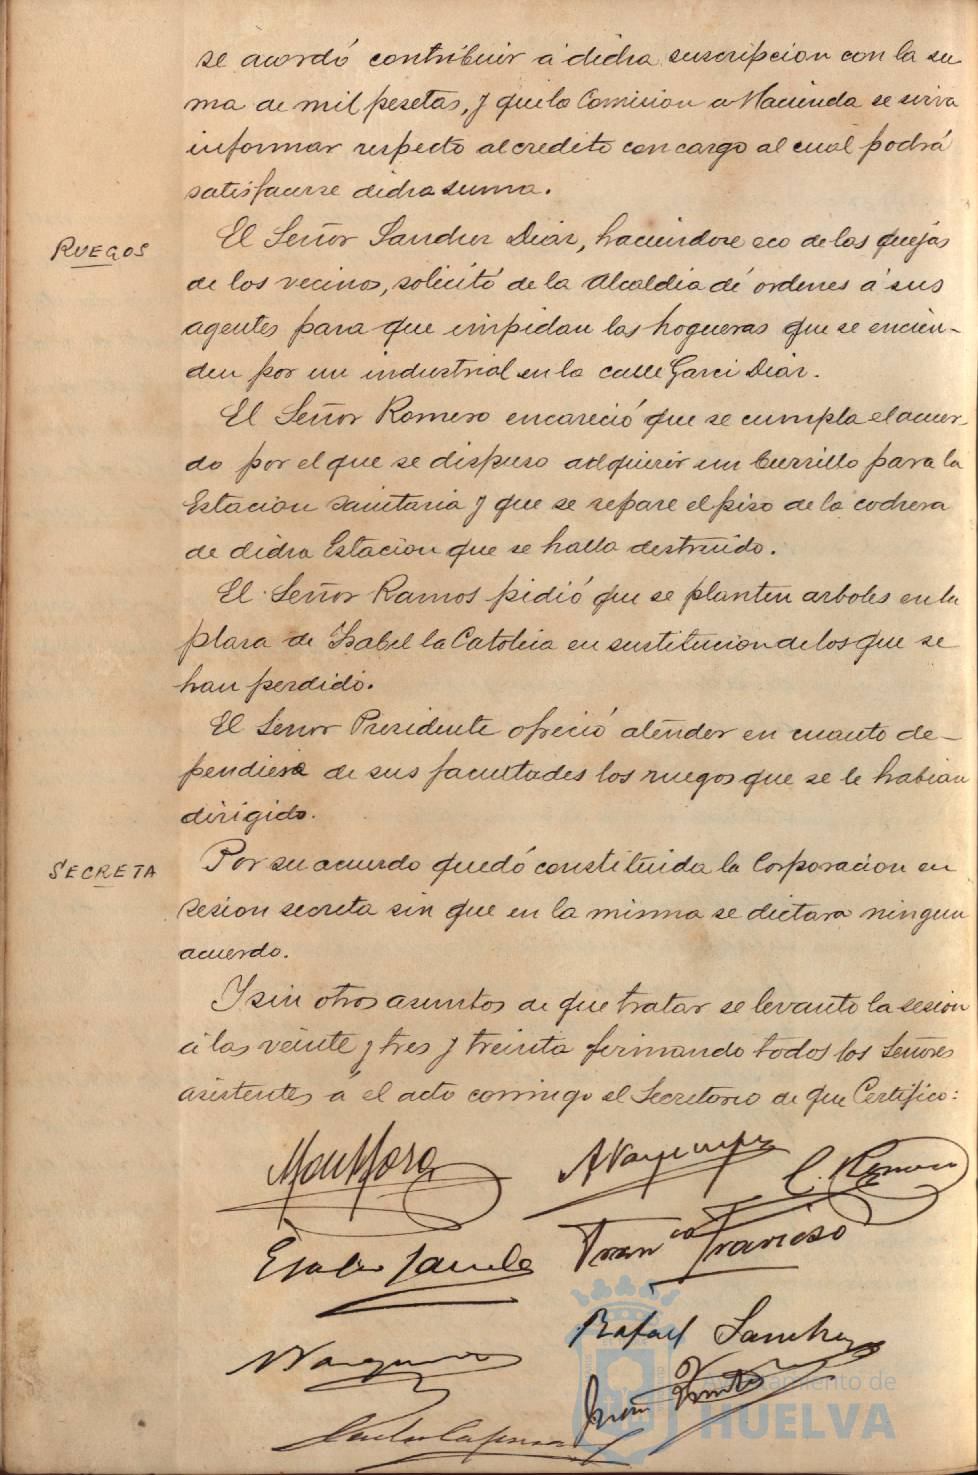 se acordó contribuir á dicha suscripcion con la su
ma de mil pesetas, y que la Comision de Hacienda se sirva
informar respecto al credito con cargo al cual podrá
satisfacerse dicha suma.
RUEGOS
El Señor Sanchez Diaz, haciendose eco de las quejas
de los vecinos, solicitó de la Alcaldia dé ordenes á sus
agentes para que impidan las hogueras que se encien-
den por un industrial en la calle Garci Diaz.
El Señor Romero encareció que se cumpla el acuer-
do por el que se dispuso adquirir un burrillo para la
Estacion sanitaria y que se repare el piso de la cochera
de dicha Estacion que se halla destruido.
El Señor Ramos pidió que se planten arboles en la
plaza de Isabel la Catolica en sustitucion de los que se
han perdido.
El Señor Presidente ofreció atender en cuanto de-
pendiese de sus facultades los ruegos que se le habian
dirigido.
SECRETA
Por su acuerdo quedó constituida la Corporacion en
sesion secreta sin que en la misma se dictara ningun
acuerdo.
Y sin otros asuntos de que tratar se levanto la sesion
á las veinte y tres y treinta firmando todos los Señores
asistentes á el acto conmigo el Secretario de que Certifico:
C. Romero
Rafael Sanchez
Juan
Ayuntamiento de
HUELVA